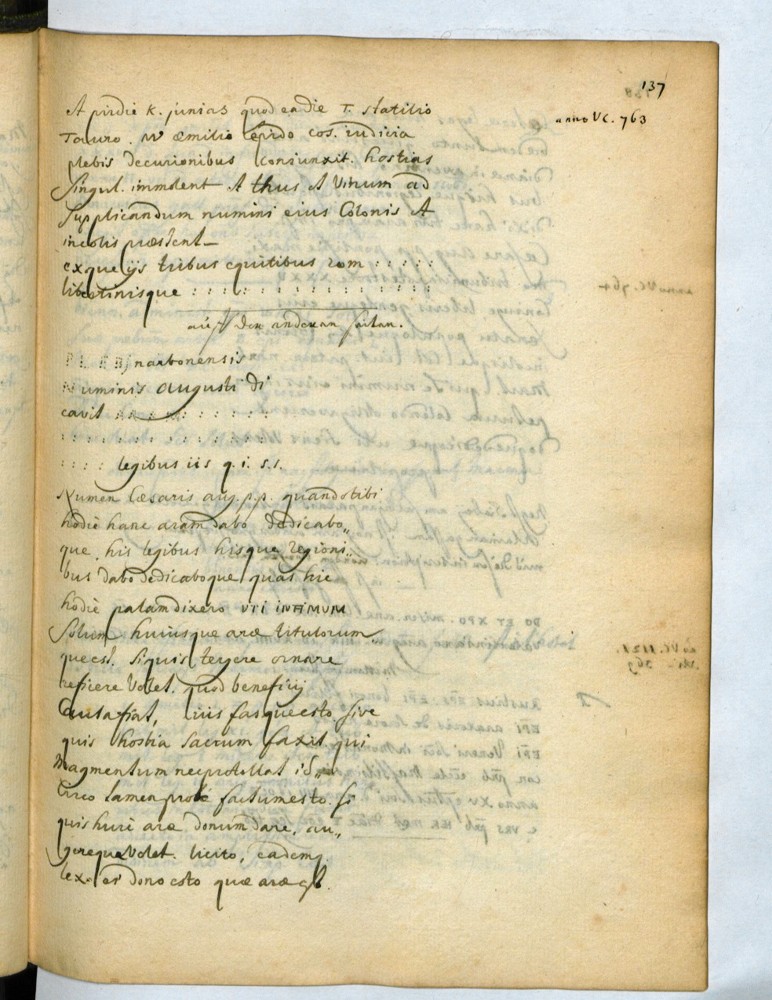 137
A pridie K. junias quod ea die T. statilio
anno VC. 763
Tauro. M' æmilio Lepido cos. iudicia
plebis decurionibus coniunxit. hostias
singul. immolent A thus A vinum ad
supplicandum numini eius Colonis A
incolis præstent
exque ijs tribus equitibus rom : : : : :
libertinisque : : : : : : : : : : : : :
PLEBS narbonensis
Numinis augusti di
cavit : : : : : : : : :
: : : : : : : : : : :
: : : : legibus iis q. i. s.s.
Numen Cæsaris aug. p.p. quandotibi
hodie hanc aram dabo dedicabo„
que. his legibus hisque regioni„
bus dabo dedicaboque quas hic
hodie palam dixero VTI INFIMVM
Solum huiusque aræ titulorum
que est. Siquis tergere ornare
reficere Volet. quod beneficij
Causa fiat, ius fasque esto sive
quis hostia Sacrum faxit qui
Magmentum nec protollat id
circo tamen probe factum esto. si
quis huic aræ donum dare, au„
gereque Volet. liceto, eademq.
lex. ei dono esto quæ aræ est.